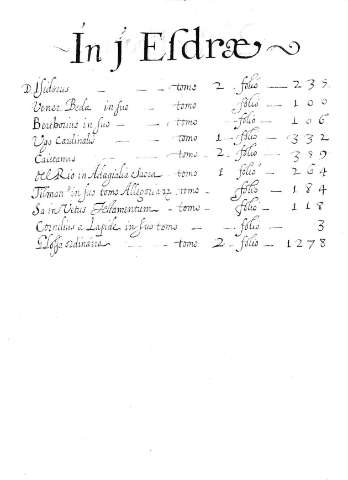 In j Esdræ
D. Isidorus — — — tomo 2 - folio — 235
Vener Beda in suo — tomo folio — 100
Borrhonius in suo — — tomo folio — 106
Ugo Cardinalis — — tomo 1 - folio — 332
Caietanus tomo - 2. - folio — 389
del Rio in Adagialia Sacra — tomo 1 folio — 264
Tilman' in suo tomo Allegoria tomo - folio — 184
Sa in Vetus Testamentum — tomo — folio — 118
Cornelius a Lapide in suo tomo — - folio — 3
Glossa ordinaria — — tomo 2 - folio — 1278